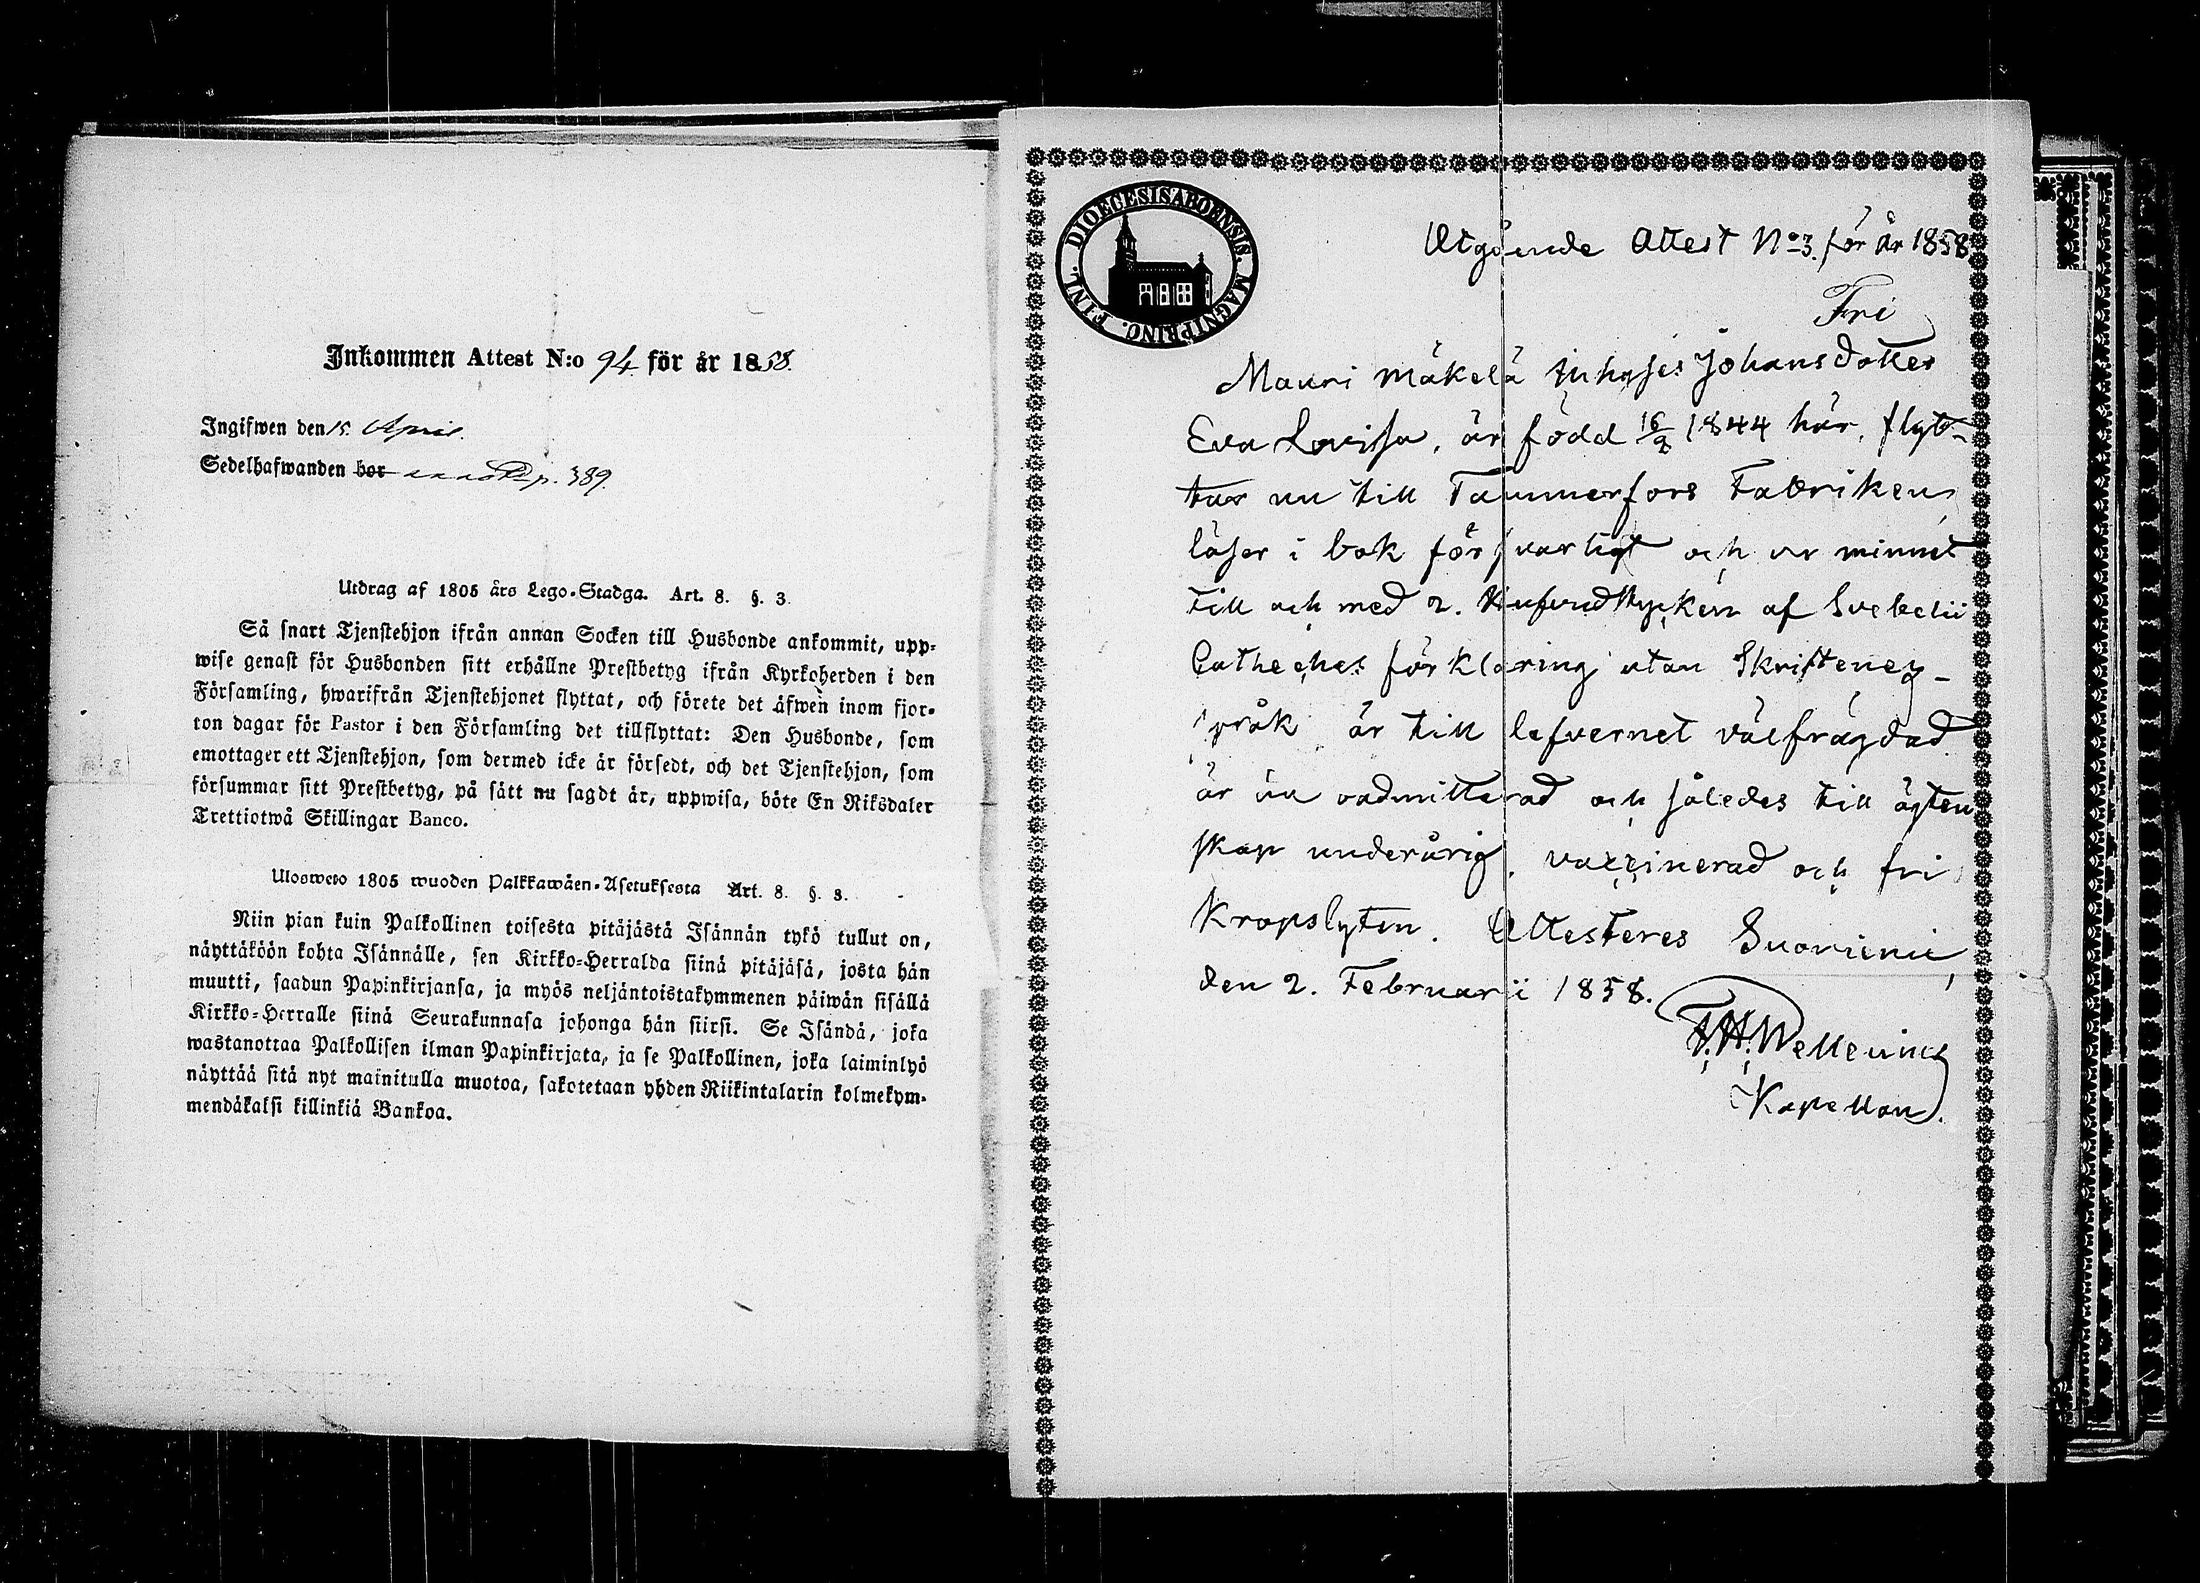 Inkommen Attest N:o 94. för år 1858.
Ingifwen den 15. April.
Sedelhafwanden bor p. 389.
Utdrag af 1805 års Lego-Stadga. Art. 8. §. 3.
Så snart Tjenstehjon ifrån annan Socken till Husbonde ankommit, upp-
wise genast för Husbonden sitt erhållne Prestbetyg ifrån Kyrkoherden i den
Församling, hwarifrån Tjenstehjonet flyttat, och förete det äfwen inom fjor-
ton dagar för Pastor i den Församling det tillflyttat: Den Husbonde, som
emottager ett Tjenstehjon, som dermed icke är försedt, och det Tjenstehjon, som
försummar sitt Prestbetyg, på sätt nu sagdt är, uppwisa, böte En Riksdaler
Trettiotwå Skillingar Banco.
Ulosweto 1805 wuoden Palkkawäen-Asetuksesta Art. 8. §. 3.
Niin pian kuin Palkollinen toisesta pitäjästä Isännän tykö tullut on,
näyttäköön kohta Isännälle, sen Kirkko-Herralda siinä pitäjäsä, josta hän
muutti, saadun Papinkirjansa, ja myös neljäntoistakymmenen päiwän sisällä
Kirkko-Herralle siinä Seurakunnasa johonga hän siirsi. Se Isändä, joka
wastanottaa Palkollisen ilman Papinkirjata, ja se Palkollinen, joka laiminlyö
näyttää sitä nyt mainitulla muotoa, sakotetaan yhden Riikintalarin kolmekym-
mendäkaksi killinkiä Bankoa.
DIOECESIS ABOENSIS. MAGNI PRINC. FINL.
Utgående Attest No 3. för år 1858.
Fri
Mauri Mäkelä Inhyses Johansdotter
Eva Lovisa, är född 16/2 1844 här, flyt-
tar nu till Tammerfors Fabriken,
läser i bok försvarligt och ur minnet
till och med 2. Hufvudstycken af Svebelii
Catheches förklaring utan Skriftenes
språk är till lefvernet välfrägdad
är oadmitterad och således till ägten
skap underårig, vaxzinerad och fri
Kropslyten. Attesteres Suoniemi,
den 2. Februarii 1858.
Kapellan.